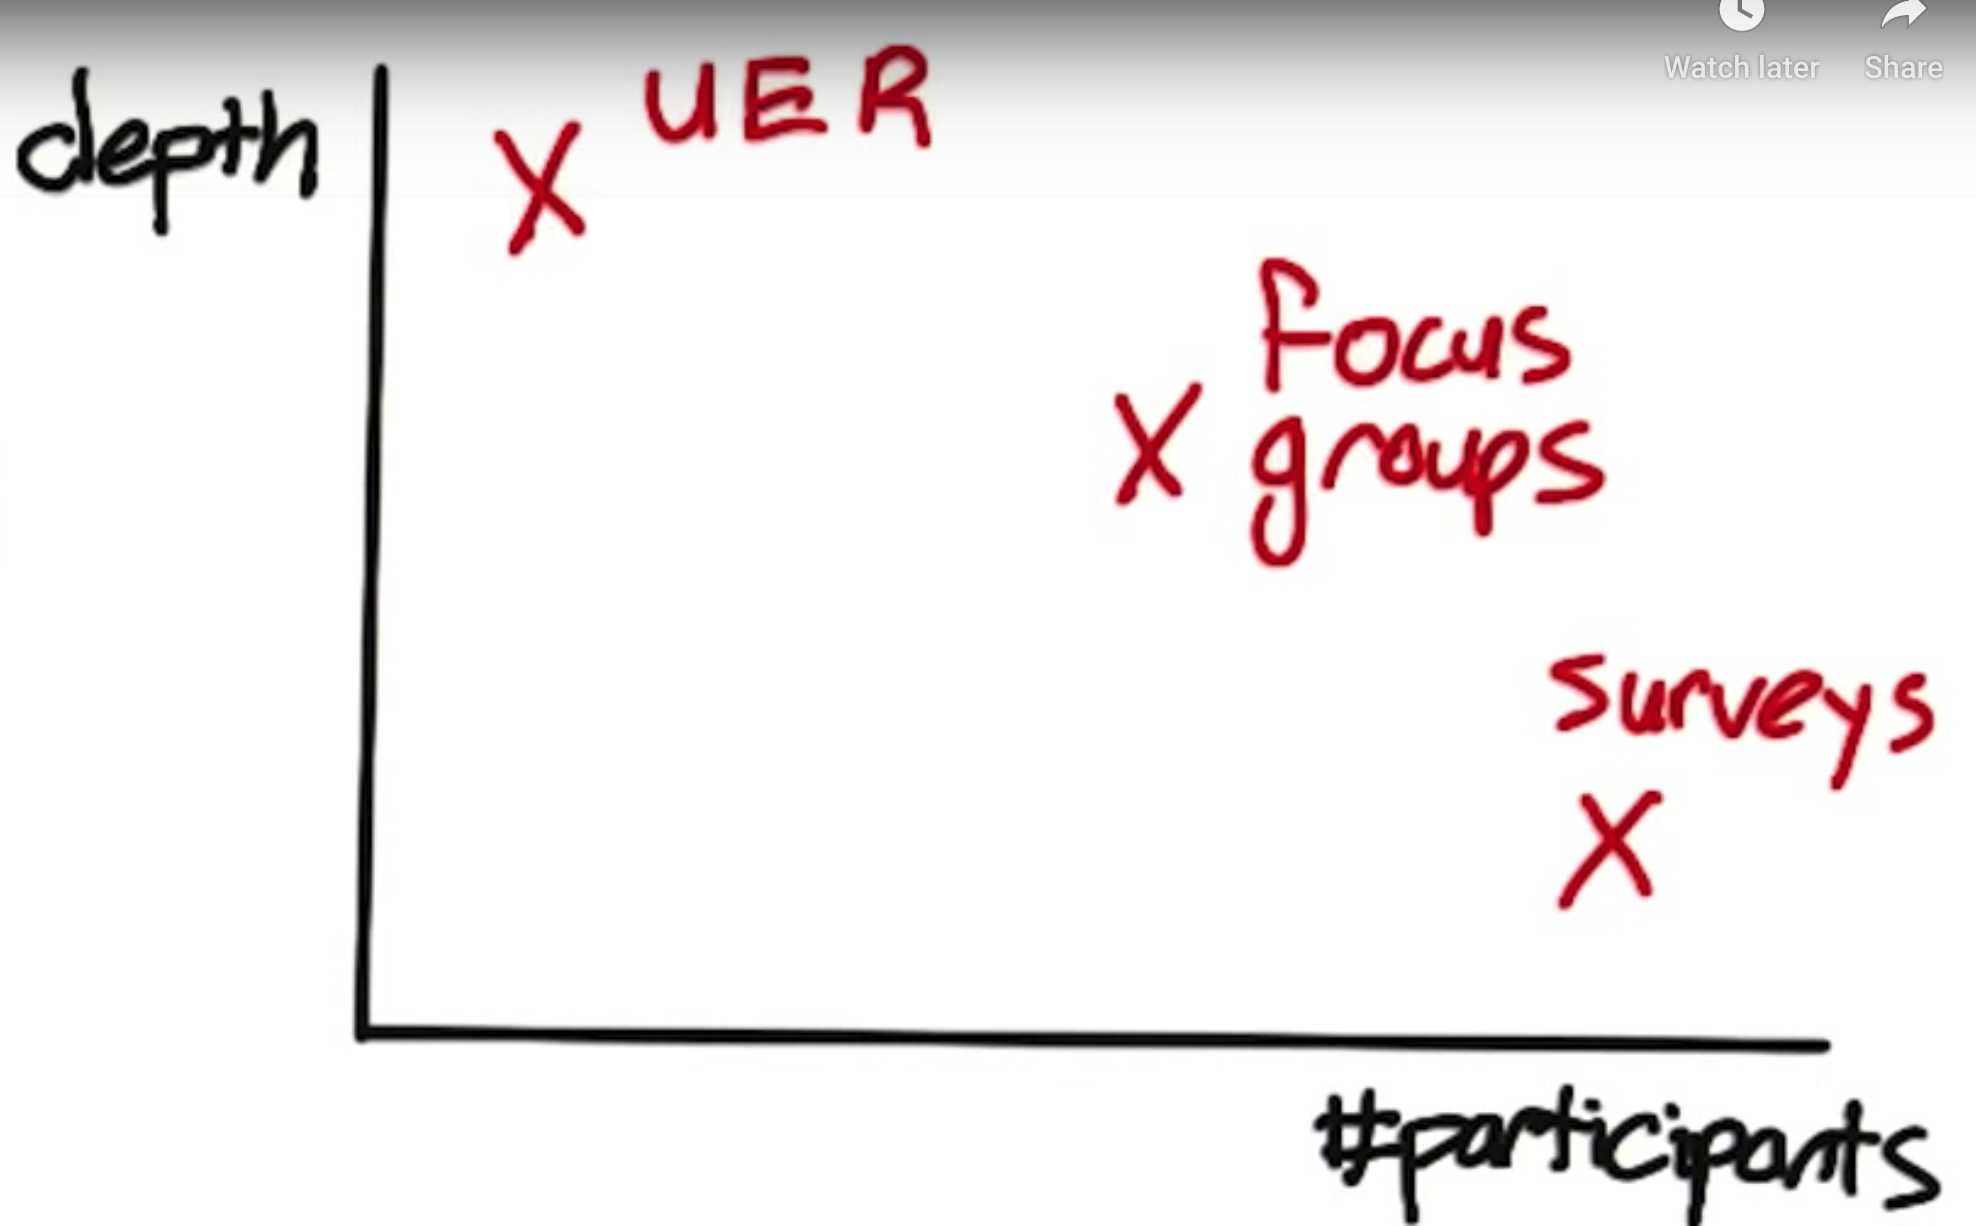 Watch later Share
depth
UER
Focus
groups
surveys
#participants